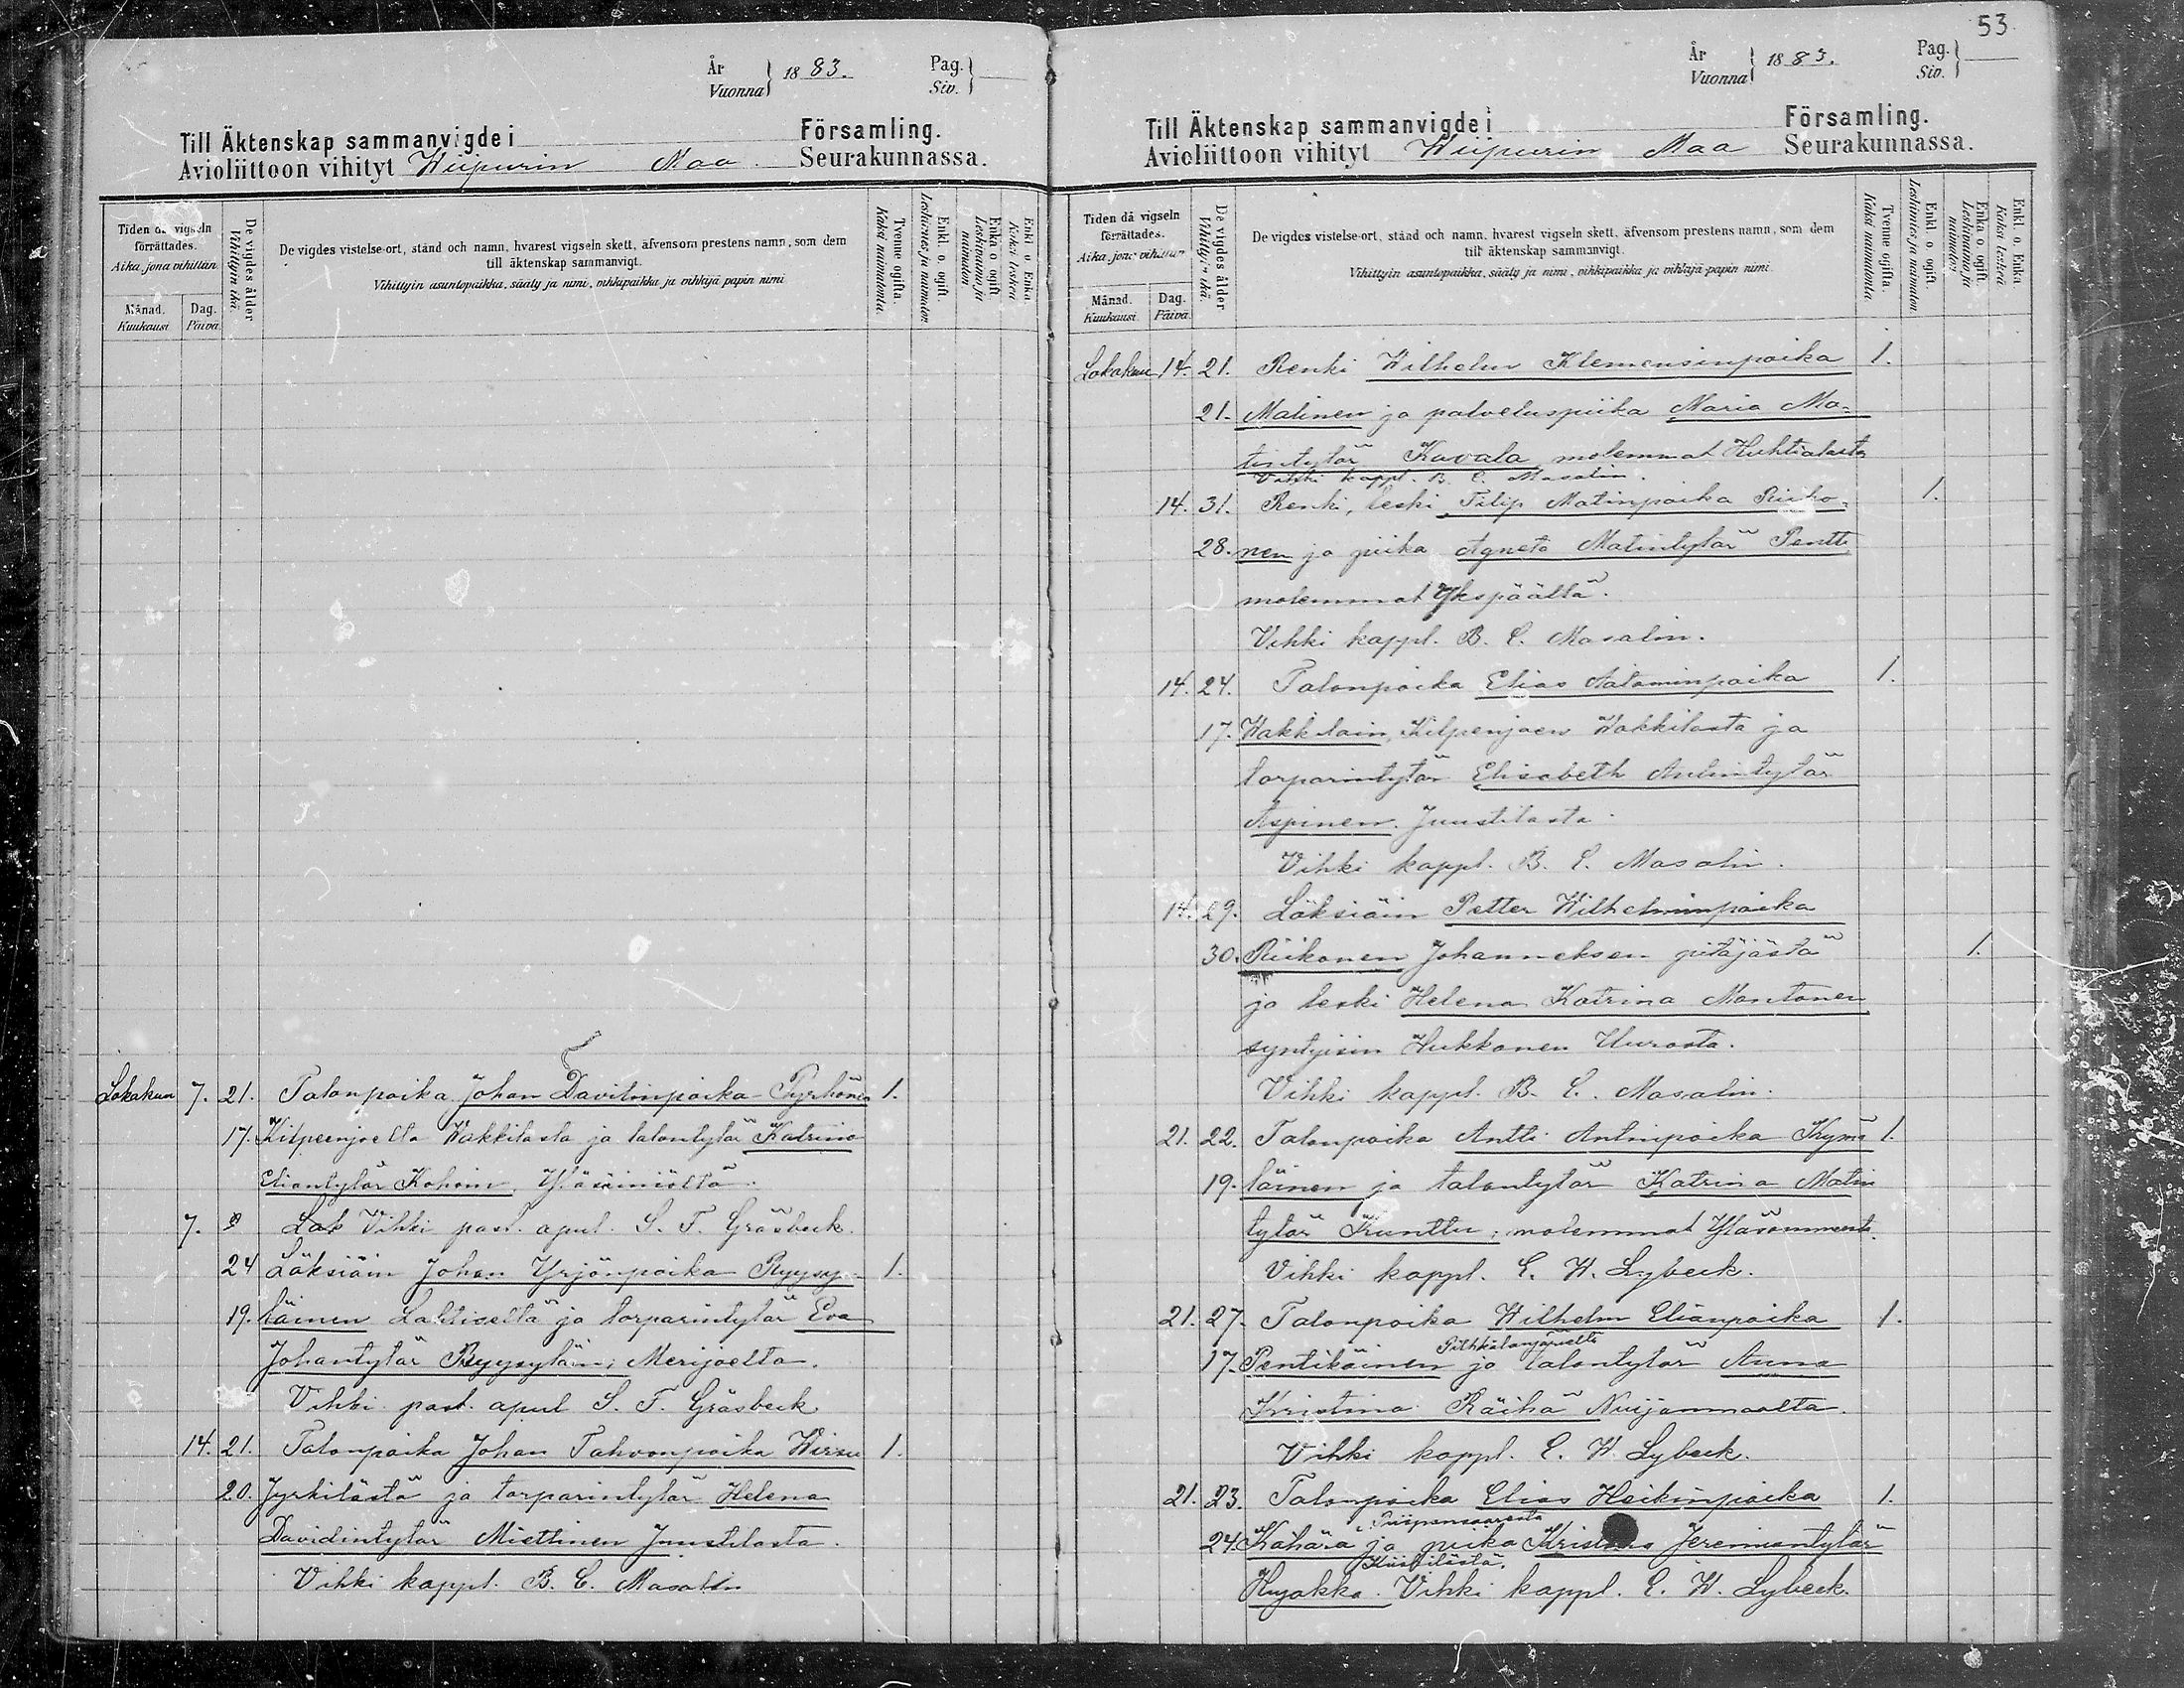 År
Vuonna 1883.
Pag.
Siv.
Till Äktenskap sammanvigde i Församling.
Avioliittoon vihityt Wiipurin Maa Seurakunnassa.
Tiden då vigseln förrättades.
Aika, jona vihittiin
Månad. Dag.
Kuukausi Päivä.
De vigdes ålder
Vihittyin ikä.
De vigdes vistelse-ort, stånd och namn, hvarest vigseln skett, äfvensom prestens namn, som dem
till äktenskap sammanvigt.
Vihittyin asuntopaikka, sääty ja nimi, vihkipaikka ja vihkijä papin nimi
Tvenne ogifta.
Kaksi naimatonta
Enkl. o. ogift.
Leskimies ja naimaton
Enka o. ogift.
Leskivaimo ja naimaton
Enkl. o. Enka
Kaksi leskeä
Lokakuu 7. 21. Talonpoika Johan Davitinpoika Pyrhönen 1.
17. Kilpeenjoelta Wakkilasta ja talontytär Katrina
Eliantytär Kohoin, Yläsäiniöltä.
7. Vihki past. apul. S. F. Gräsbeck.
24 Läksiäin Johan Yrjönpoika Ryysy- 1.
19. läinen Lahtiselta ja torparintytär Eva
Johantytär Ryysyläin; Merijoelta.
Vihki past. apul S. F. Gräsbeck
14. 21. Talonpoika Johan Tahvonpoika Wirsu 1.
20. Jyrkilästä ja torparintytär Helena
Davidintytär Miettinen Juustilasta.
Vihki kappl. B. C. Masalin
53
År
Vuonna 1883.
Pag.
Siv.
Till Äktenskap sammanvigde i Församling.
Avioliittoon vihityt Wiipurin Maa Seurakunnassa.
Tiden då vigseln förrättades.
Aika, jona vihittiin
Månad. Dag.
Kuukausi Päivä.
De vigdes ålder
Vihittyin ikä.
De vigdes vistelse-ort, stånd och namn, hvarest vigseln skett, äfvensom prestens namn, som dem
till äktenskap sammanvigt.
Vihittyin asuntopaikka, sääty ja nimi, vihkipaikka ja vihkijä papin nimi
Tvenne ogifta.
Kaksi naimatonta
Enkl. o. ogift.
Leskimies ja naimaton
Enka o. ogift.
Leskivaimo ja naimaton
Enkl. o. Enka
Kaksi leskeä
Lokakuu 14. 21. Renki Wilhelm Klemensinpoika 1.
21. Matinen ja palveluspiika Maria Ma-
tintytär Kavala molemmat Huhtialasta
Vihki kappl. B. C. Masalin.
14. 31. Renki, leski Filip Matinpoika 1.
28. nen ja piika Agneta Matintytär Pentti
molemmat Ykspäältä.
Vihki kappl. B. C. Masalin.
14. 24. Talonpoika Elias Aataminpoika 1.
17. Wakkilain, Kilpenjoen Wakkilasta ja
torparintytär Elisabeth Antintytär
Aspinen. Juustilasta.
Vihki kappl. B. C. Masalin.
14. 29. Läksiäin Petter Wilhelminpoika
30. Riikonen Johanneksen pitäjästä 1.
ja leski Helena Katrina Mantonen
syntyisin Hukkanen Uurasta.
Vihki kappl. B. C. Masalin.
21. 22. Talonpoika Antti Antinpoika Kymä 1.
19. läinen ja talontytär Katrina Matin
tytär Kunttu; molemmat Yläsommeesta.
Vihki kappl. E. W. Lybeck.
21. 27. Talonpoika Wilhelm Elianpoika 1.
Pitkkälanjoelta
17. Pentikäinen ja talontytär Anna
Kristina Räihä Nuijanmaalta.
Vihki kappl. E. W. Lybeck.
21. 23. Talonpoika Elias Heikinpoika 1.
Piispansaaresta
24. Kähärä ja piika Kristina Jeremiantytär
Kiiskilästä.
Hujakka. Vihki kappl. E. W. Lybeck.